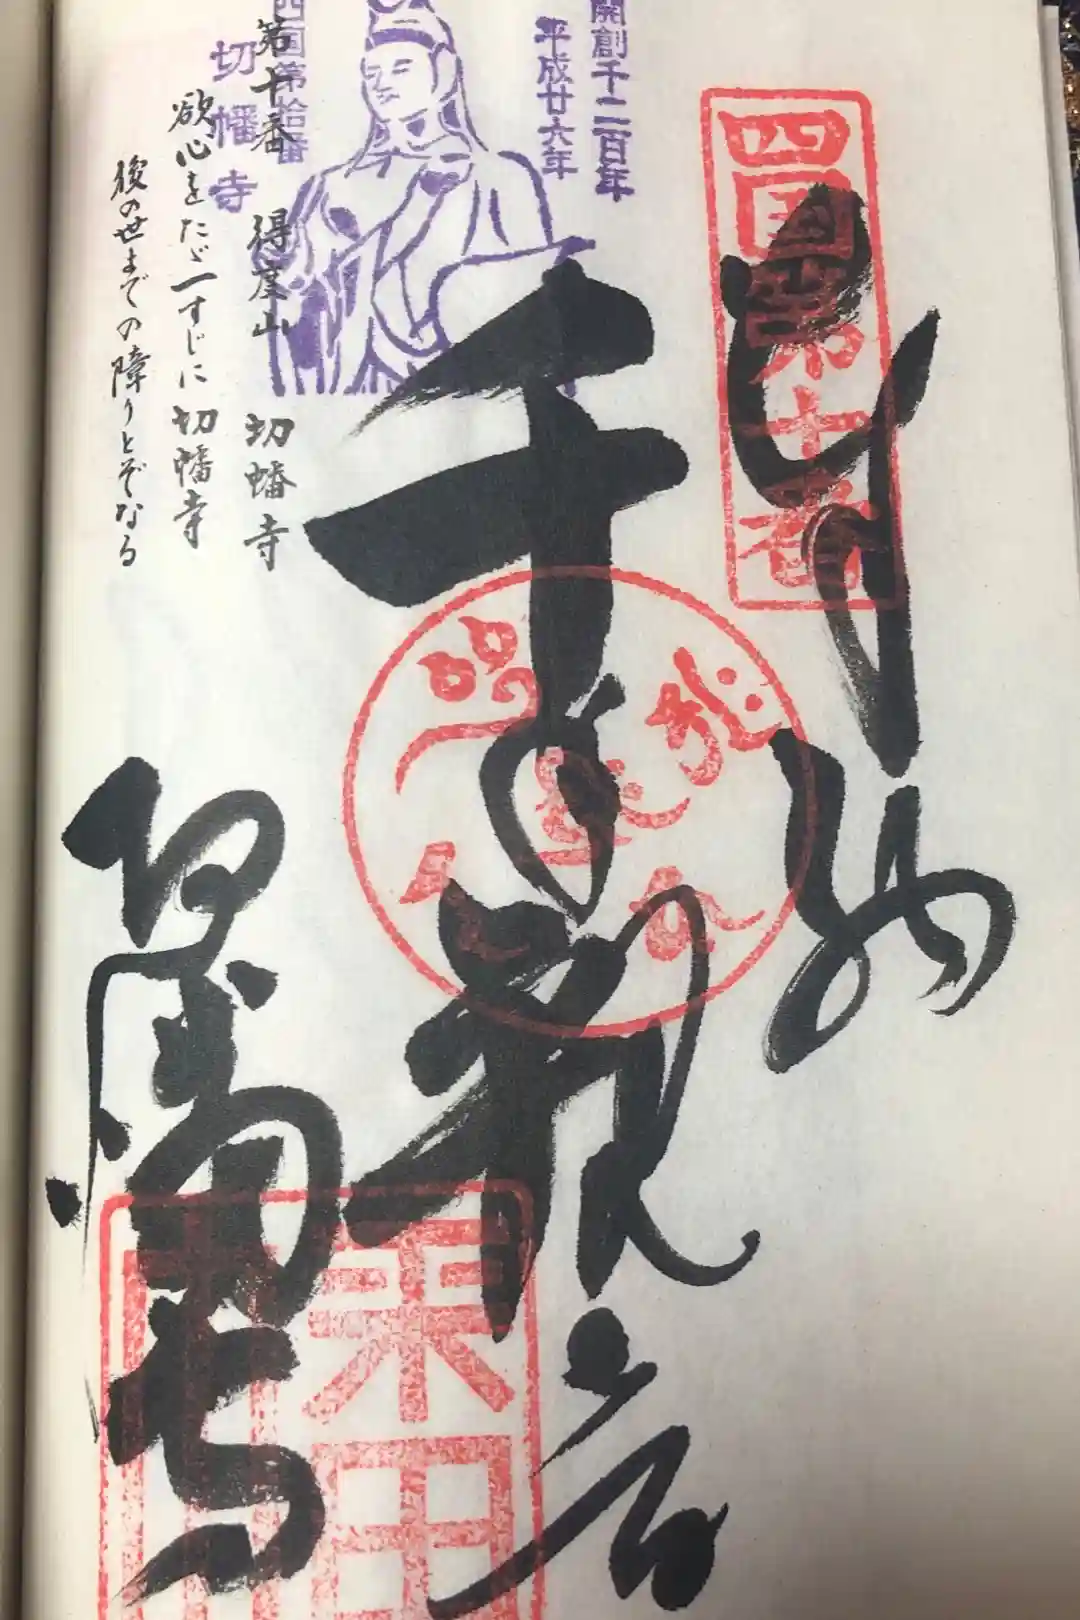 四国第十番
奉納
千手観音
切幡寺
開創千二百年
平成廿六年
四国第拾番
切幡寺
第十番 得度山 切幡寺
欲心をたゞ一すじに切幡寺
後の世までの障りとぞなる